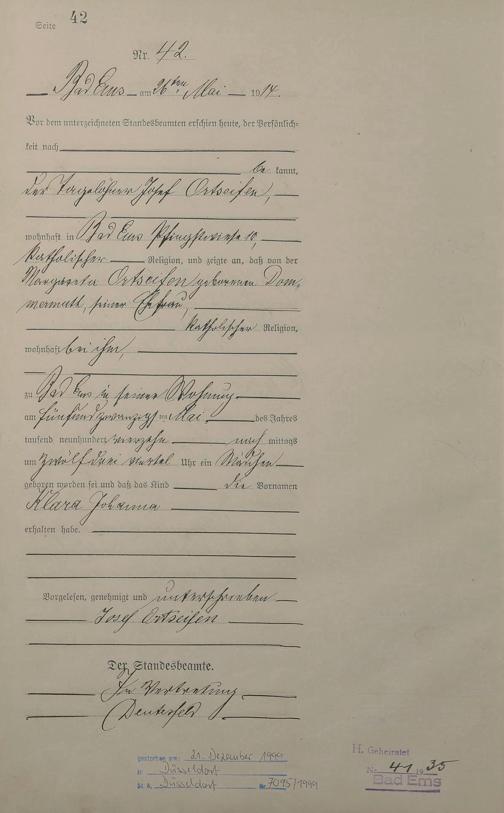 Seite 42
Nr. 42.
Bad Ems am 26ten Mai 1914.
Vor dem unterzeichneten Standesbeamten erschien heute, der Persönlich-
keit nach
be kannt,
der Tagelöhner Josef Ortseifen,
wohnhaft in Bad Ems Pfingstwiese 10,
katholischer Religion, und zeigte an, daß von der
Margareta Ortseifen geborenen Dom,
seiner Ehefrau,
katholischer Religion,
wohnhaft bei ihm,
zu Bad Ems in seiner Wohnung
am fünfundzwanzigsten Mai des Jahres
tausend neunhundert vierzehn nach mittags
um zwölf drei viertel Uhr ein Mädchen
geboren worden sei und daß das Kind die Vornamen
Klara Johanna
erhalten habe.
Vorgelesen, genehmigt und unterschrieben
Josef Ortseifen
Der Standesbeamte.
In Vertretung
gestorben am: 21. Dezember 1999
in Düsseldorf
St. A. Düsseldorf Nr. 7095/1999
H. Geheiratet
Nr. 41 1935
Bad Ems